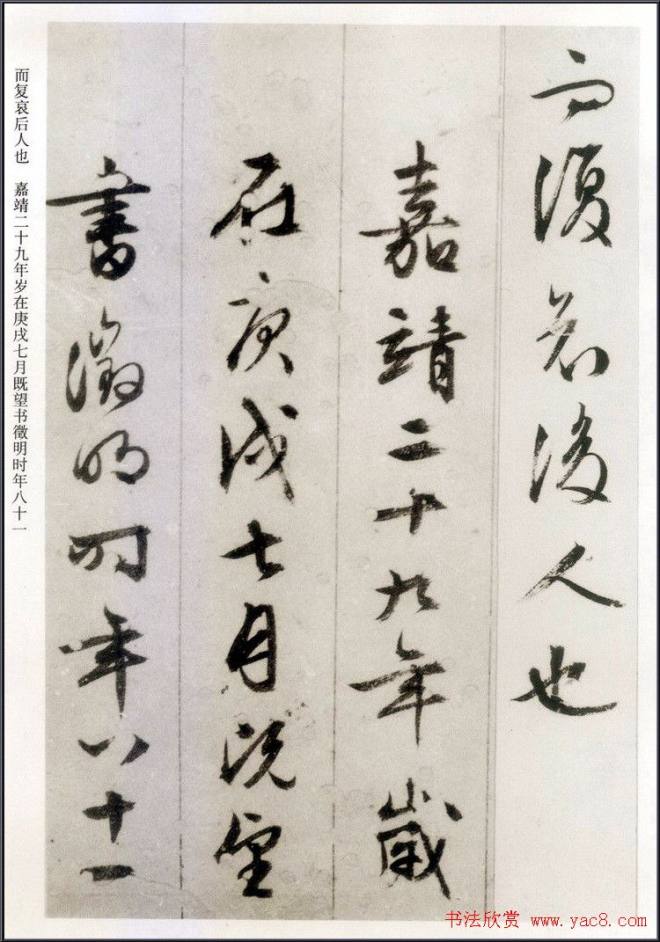 而復哀後人也
嘉靖二十九年歲
在庚戌七月既望
書徵明時年八十一
而复哀后人也　嘉靖二十九年岁在庚戌七月既望书徵明时年八十一
书法欣赏 www.yac8.com